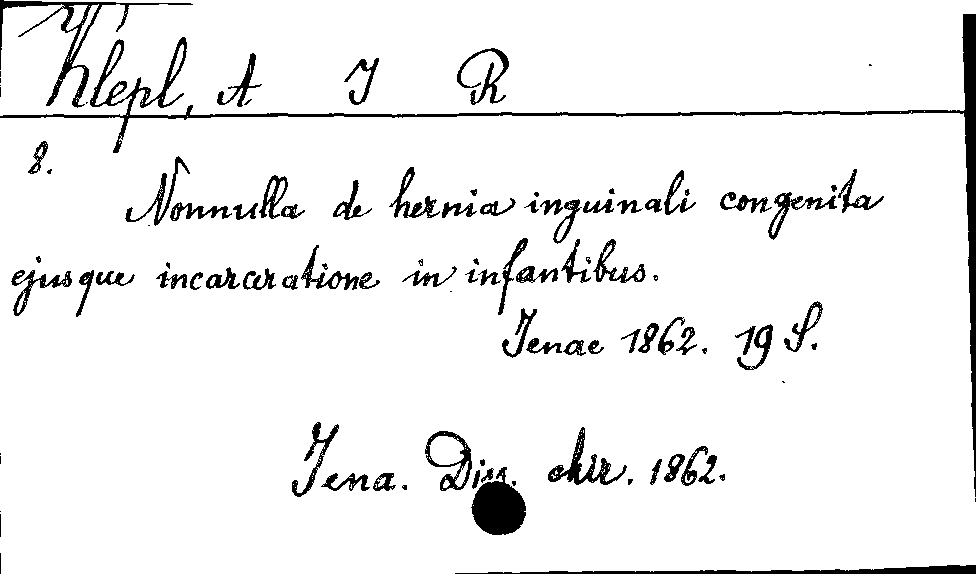 Klepl, A J R
8.
Nonnulla de hernia inguinali congenita
ejusque incarceratione in infantibus.
Jenae 1862. 19 S.
Jena. Diss. chir. 1862.